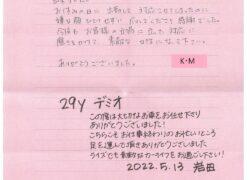 お休みの日に 出勤して 対応させてしまったのに
嫌な顔ひとつせずに
今後も お客様の 立場に立った 対応に
磨きをかけて 素敵な
ありがとうございました。
K・M
29y デミオ
この度は大切なお車をお任せ下さり
ありがとうございました!
こちらこそお仕事終わりのお忙しいところ
足を運んで頂きありがとうございました
ライズでも素敵なカーライフをお過ごし下さい!
2022.5.13 岩田